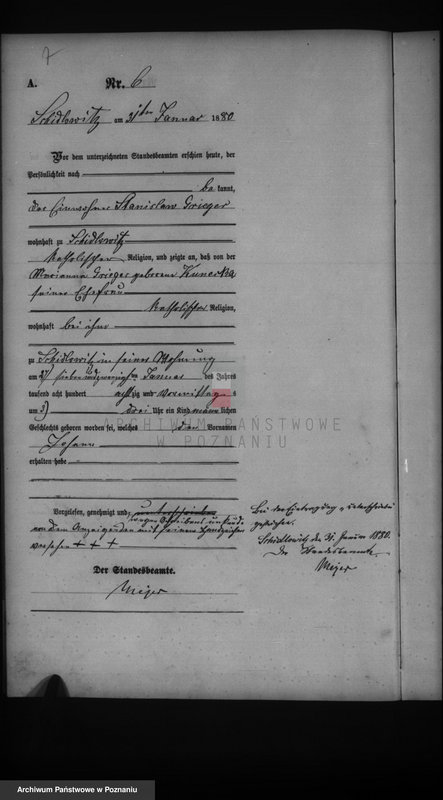 7
A.
Nr. 6
Schidlowitz am 31ten Januar 1880
Vor dem unterzeichneten Standesbeamten erschien heute, der
Persönlichkeit nach
be kannt,
der Einwohner Stanislaw Grieger
wohnhaft zu Schidlowitz
katholischer Religion, und zeigte an, daß von der
Marianna Grieger geborenen
seiner Ehefrau
katholischer Religion,
wohnhaft bei ihm
zu Schidlowitz in seiner Wohnung
am 27 sieben und zwanzigsten Januar des Jahres
tausend acht hundert achtzig und Vormittags
um 3 drei Uhr ein Kind männlichen
Geschlechts geboren worden sei, welches den Vornamen
Johann
erhalten habe
Vorgelesen, genehmigt und unterschrieben
wegen Schreibens unkunde
von dem Anzeigenden mit seinem Handzeichen
versehen + + +
Der Standesbeamte.
Meyer
Bei der Eintragung
gestrichen.
Schidlowitz den 31. Januar 1880.
Der Standesbeamte
Meyer
ARCHIWUM PAŃSTWOWE
W POZNANIU
Archiwum Państwowe w Poznaniu